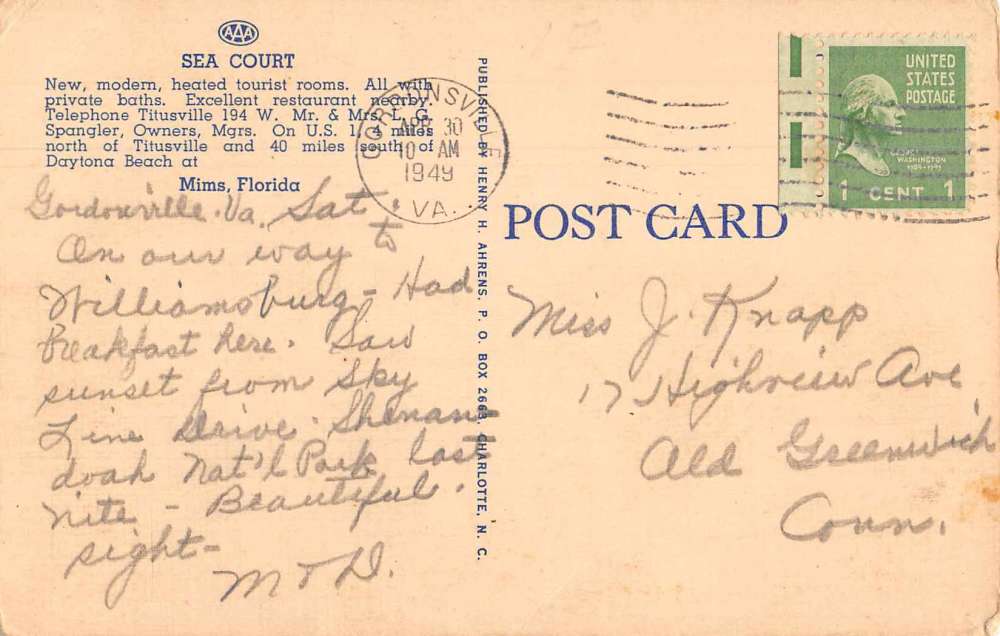 AAA
SEA COURT
New, modern, heated tourist rooms. All with
private baths. Excellent restaurant nearby.
Telephone Titusville 194 W. Mr. & Mrs. L. G.
Spangler, Owners, Mgrs. On U.S. 1, 4 miles
north of Titusville and 40 miles south of
Daytona Beach at
Mims, Florida
Gordonsville. Va. Sat.
On our way to
Williamsburg - Had
breakfast here. Saw
sunset from Sky
Line Drive. Shenan-
doah Nat'l Park last
nite - Beautiful
sight -
M & D.
PUBLISHED BY HENRY H. AHRENS, P. O. BOX 2663, CHARLOTTE, N. C.
GORDONSVILLE
APR 30
10 AM
1949
VA.
UNITED
STATES
POSTAGE
WASHINGTON
1 CENT 1
POST CARD
Miss J. Knapp
17 Highview Ave
Old Greenwich
Conn.